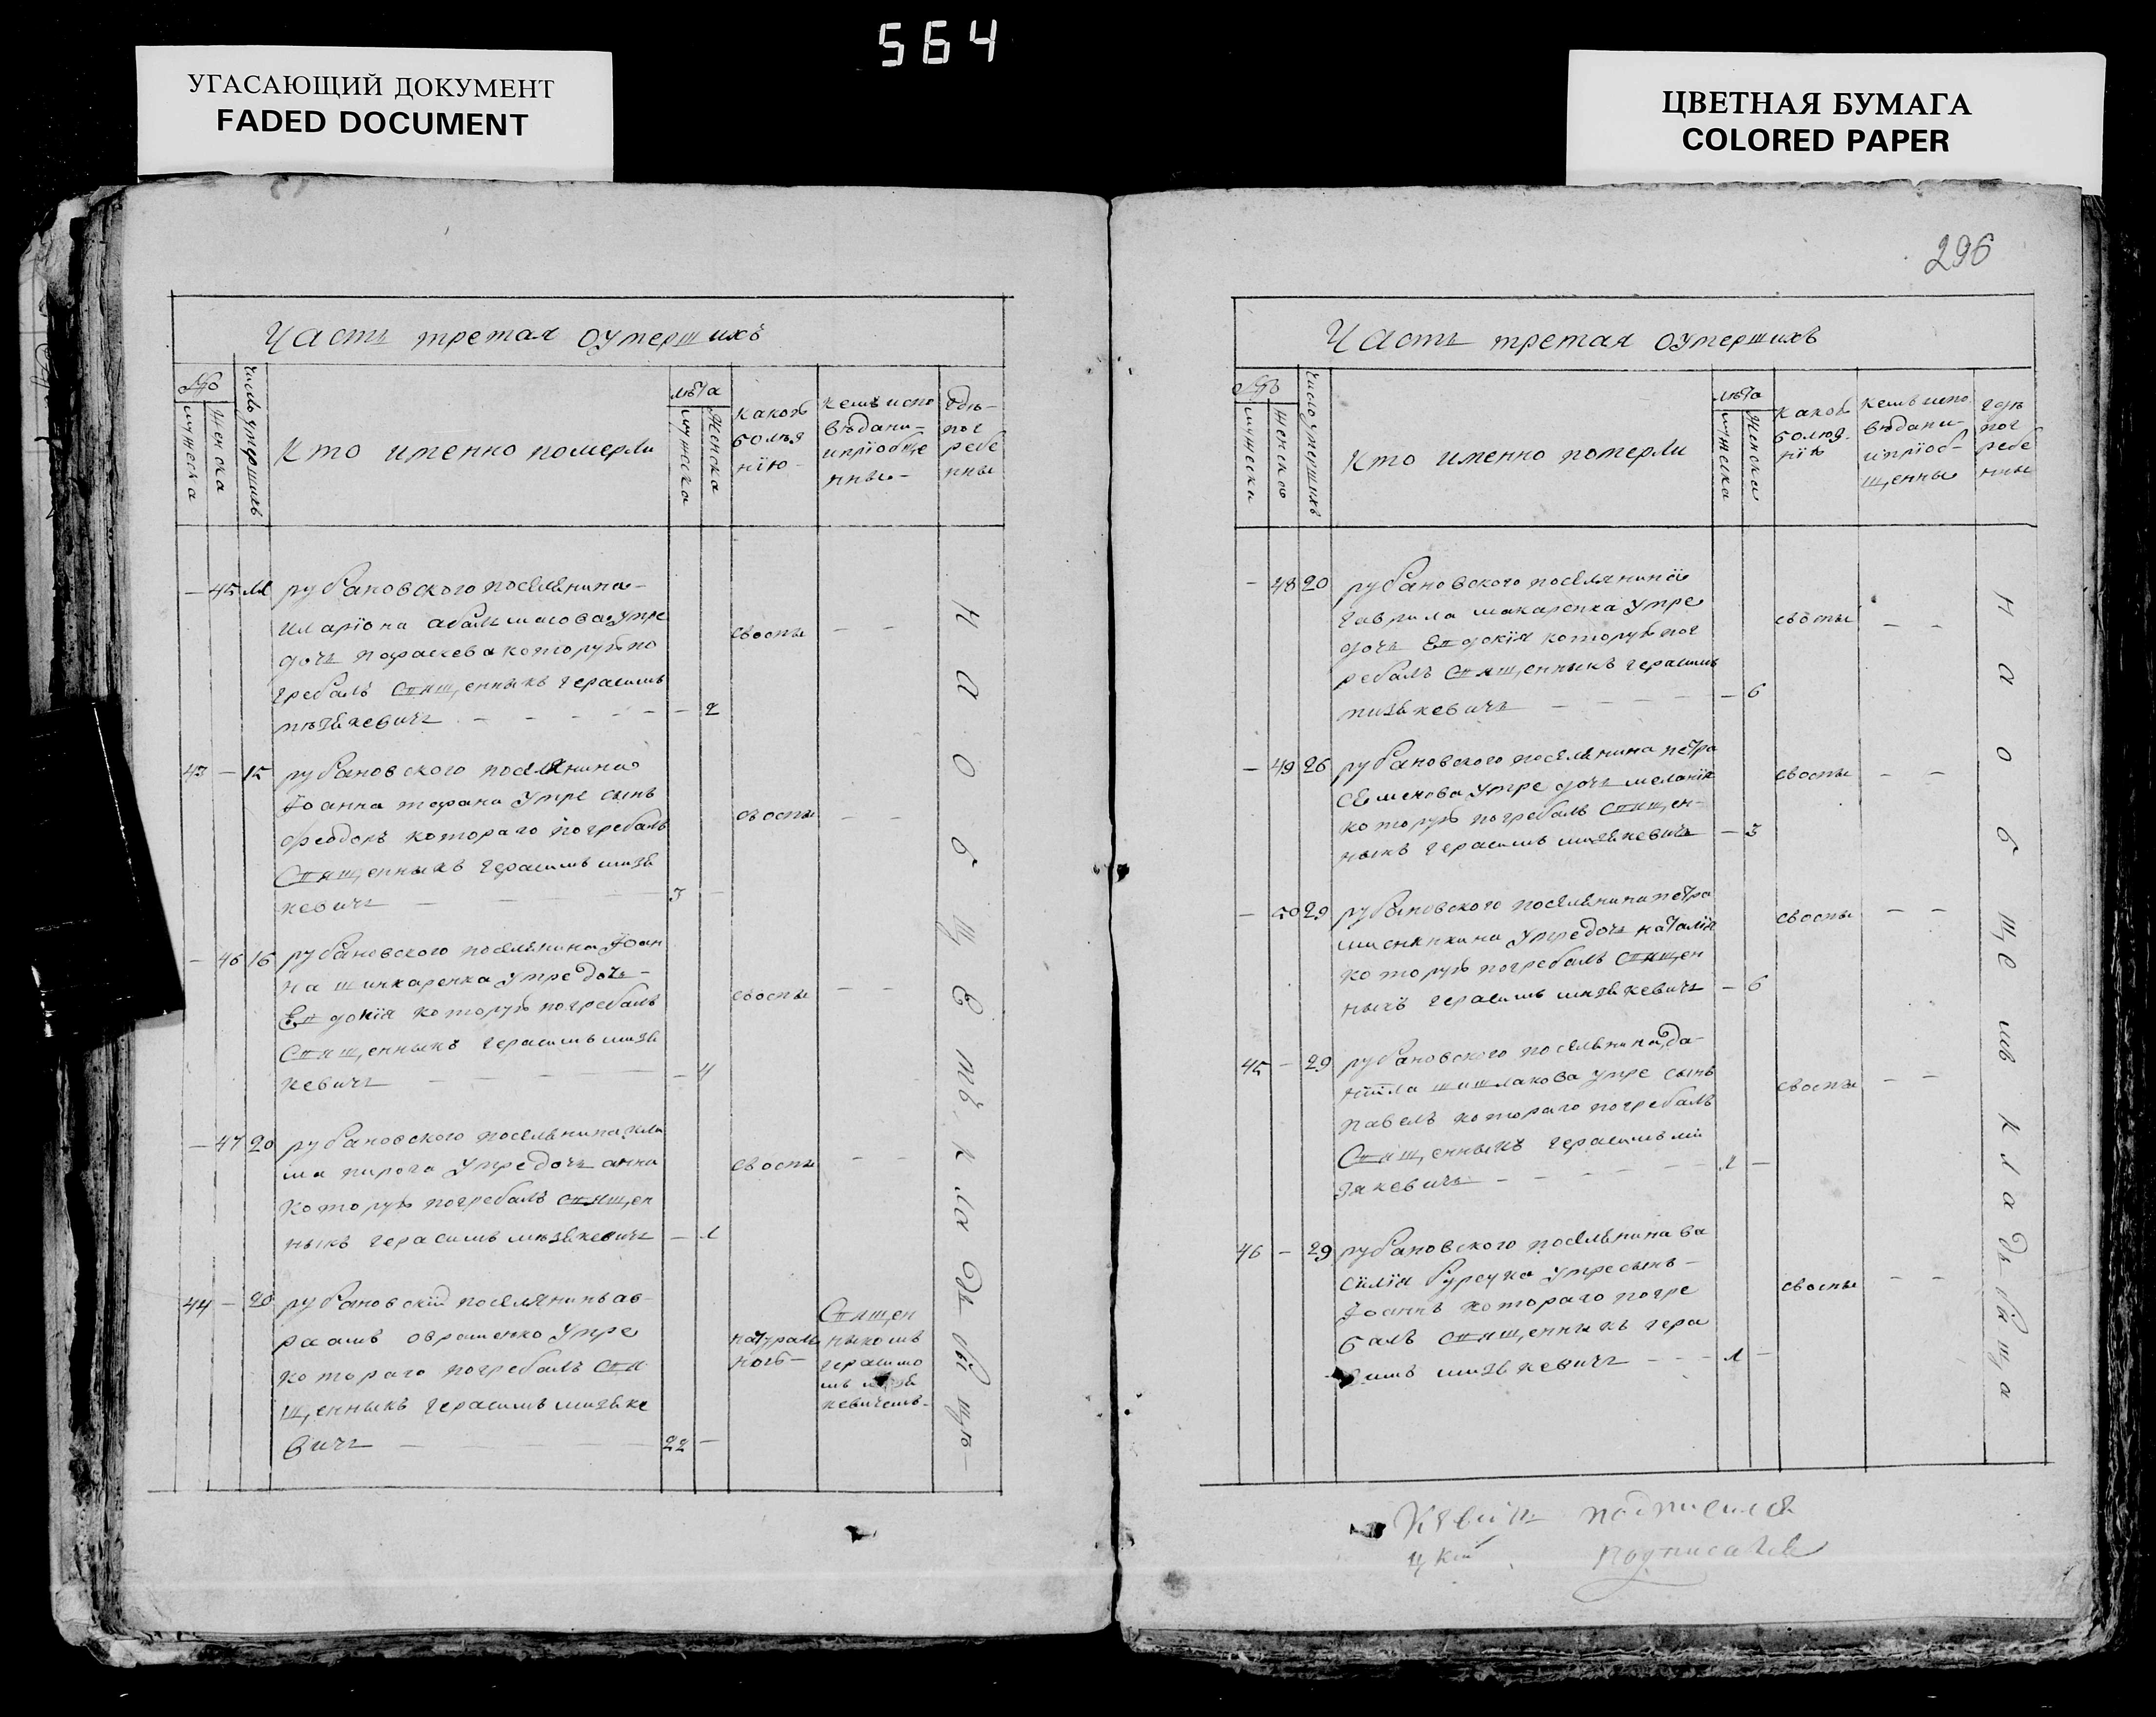 564
УГАСАЮЩИЙ ДОКУМЕНТ
FADED DOCUMENT
ЦВЕТНАЯ БУМАГА
COLORED PAPER
Часть третая оумершихъ
№
мужеска
женска
число умершихъ
Кто именно померли
лѣта
мужеска
женска
какою
болѣз
нїю
кемъ испо
вѣдани
ипріобще
нны
где
пог
ребе
нны
45
рубановского поселянина
Илариона
умре
дочь Параскева которую по
гребалъ Священникъ Герасимъ
2
своспы
43 15
рубановского поселянина
Іоанна умре сынъ
Феодоръ котораго погребалъ
Священникъ Герасимъ мизѣ
кевичъ
3
своспы
46 16
рубановского поселянина Іоан
на шинкаренка умре дочь
Евдокія которую погребалъ
Священникъ Герасимъ мизѣ
кевичъ
4
своспы
47 20
рубановского поселянина
пирога умре дочь анна
которую погребалъ Священ
никъ Герасимъ мизѣкевичъ
1
своспы
44 20
рубановскій поселянинъ ав
раамъ умре
котораго погребалъ Свя
щенникъ Герасимъ мизѣке
вичъ
22
натураль
ною
Священ
никомъ
Герасимо
мъ мизѣ
кевичемъ
на общемъ кладбищѣ
296
Часть третая оумершихъ
№
мужеска
женска
число умершихъ
Кто именно померли
лѣта
мужеска
женска
какою
болѣз
нїю
кемъ испо
вѣдани
ипріоб
щенны
где
пог
ребе
нны
48 20
рубановского поселянина
Гаврила макаренка умре
дочь Евдокія которую пог
ребалъ Священникъ Герасимъ
мизѣкевичъ
6
своспы
49 26
рубановского поселянина петра
Семенова умре дочь меланія
которую погребалъ Священ
никъ Герасимъ мизѣкевичъ
3
своспы
50 29
рубановского поселянина петра
умре дочь наталія
которую погребалъ Священ
никъ Герасимъ мизѣкевичъ
6
своспы
45 29
рубановского поселянина да
ніила шишлакова умре сынъ
павелъ котораго погребалъ
Священникъ Герасимъ ми
зѣкевичъ
1
своспы
46 29
рубановского поселянина ва
силія бурсука умре сынъ
Іоаннъ котораго погре
балъ Священникъ Гера
симъ мизѣкевичъ
1
своспы
на общемъ кладбища
подписался